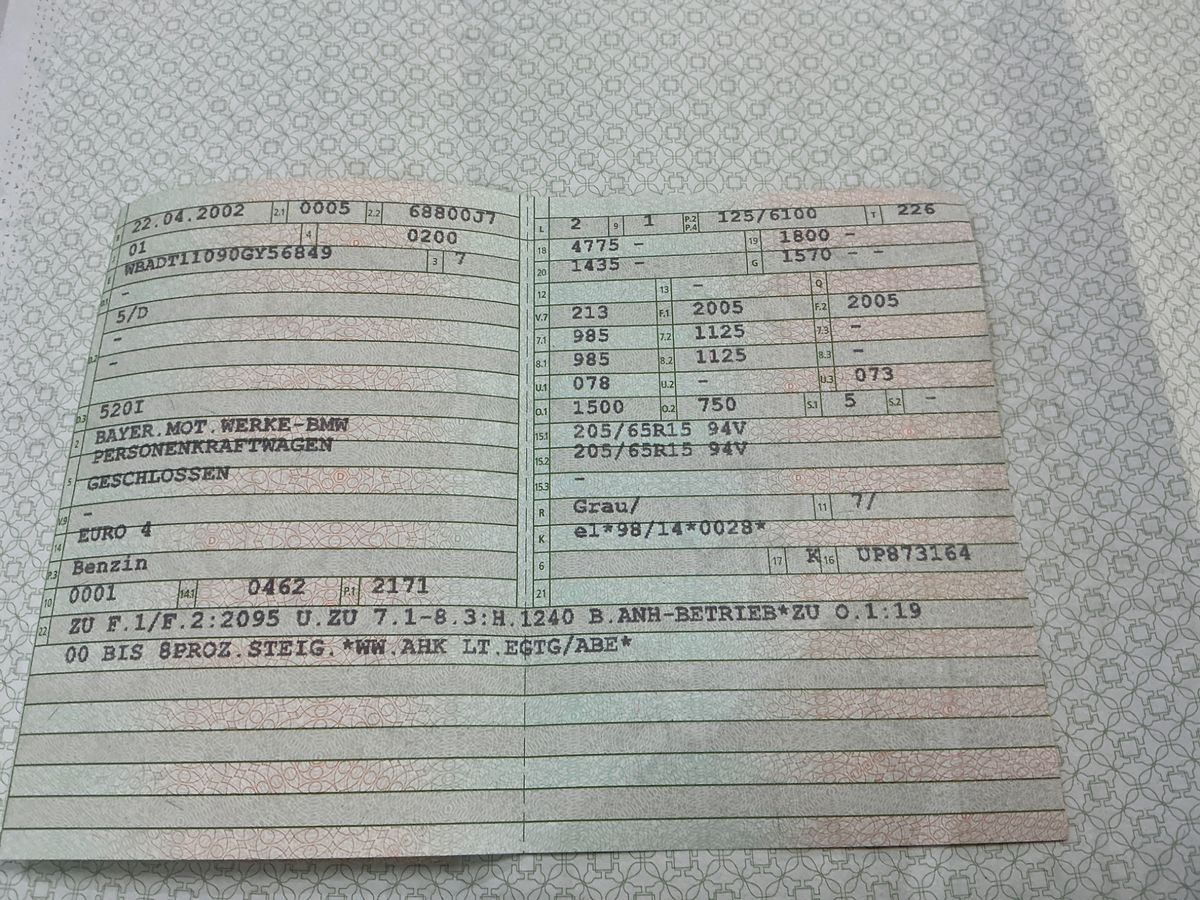 22.04.2002 2.1 0005 2.2 68800J7
01 4 0200
WBADT11090GY56849 3 7
-
5/D
-
D.2 -
D.3 520I
2 BAYER.MOT.WERKE-BMW
PERSONENKRAFTWAGEN
5 GESCHLOSSEN
V.9 -
14 EURO 4
P.3 Benzin
10 0001 14.1 0462 P.1 2171
L 2 9 1 P.2 P.4 125/6100 T 226
18 4775 - 19 1800 -
20 1435 - G 1570 - -
12 13 - Q
V.7 213 F.1 2005 F.2 2005
7.1 985 7.2 1125 7.3 -
8.1 985 8.2 1125 8.3 -
U.1 078 U.2 - U.3 073
O.1 1500 O.2 750 S.1 5 S.2 -
15.1 205/65R15 94V
15.2 205/65R15 94V
15.3 -
R Grau/ 11 7/
K e1*98/14*0028*
6 17 K 16 UP873164
21
22 ZU F.1/F.2:2095 U.ZU 7.1-8.3:H.1240 B.ANH-BETRIEB*ZU O.1:19
00 BIS 8PROZ.STEIG.*WW.AHK LT.EGTG/ABE*